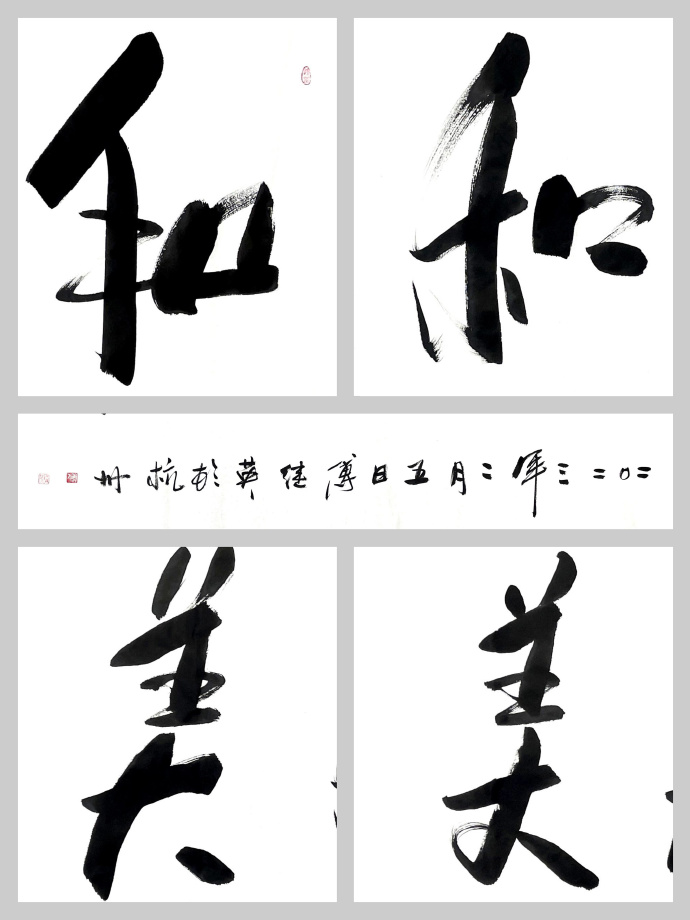 和 和
二〇二三年二月五日傅佳英於杭州
美 美